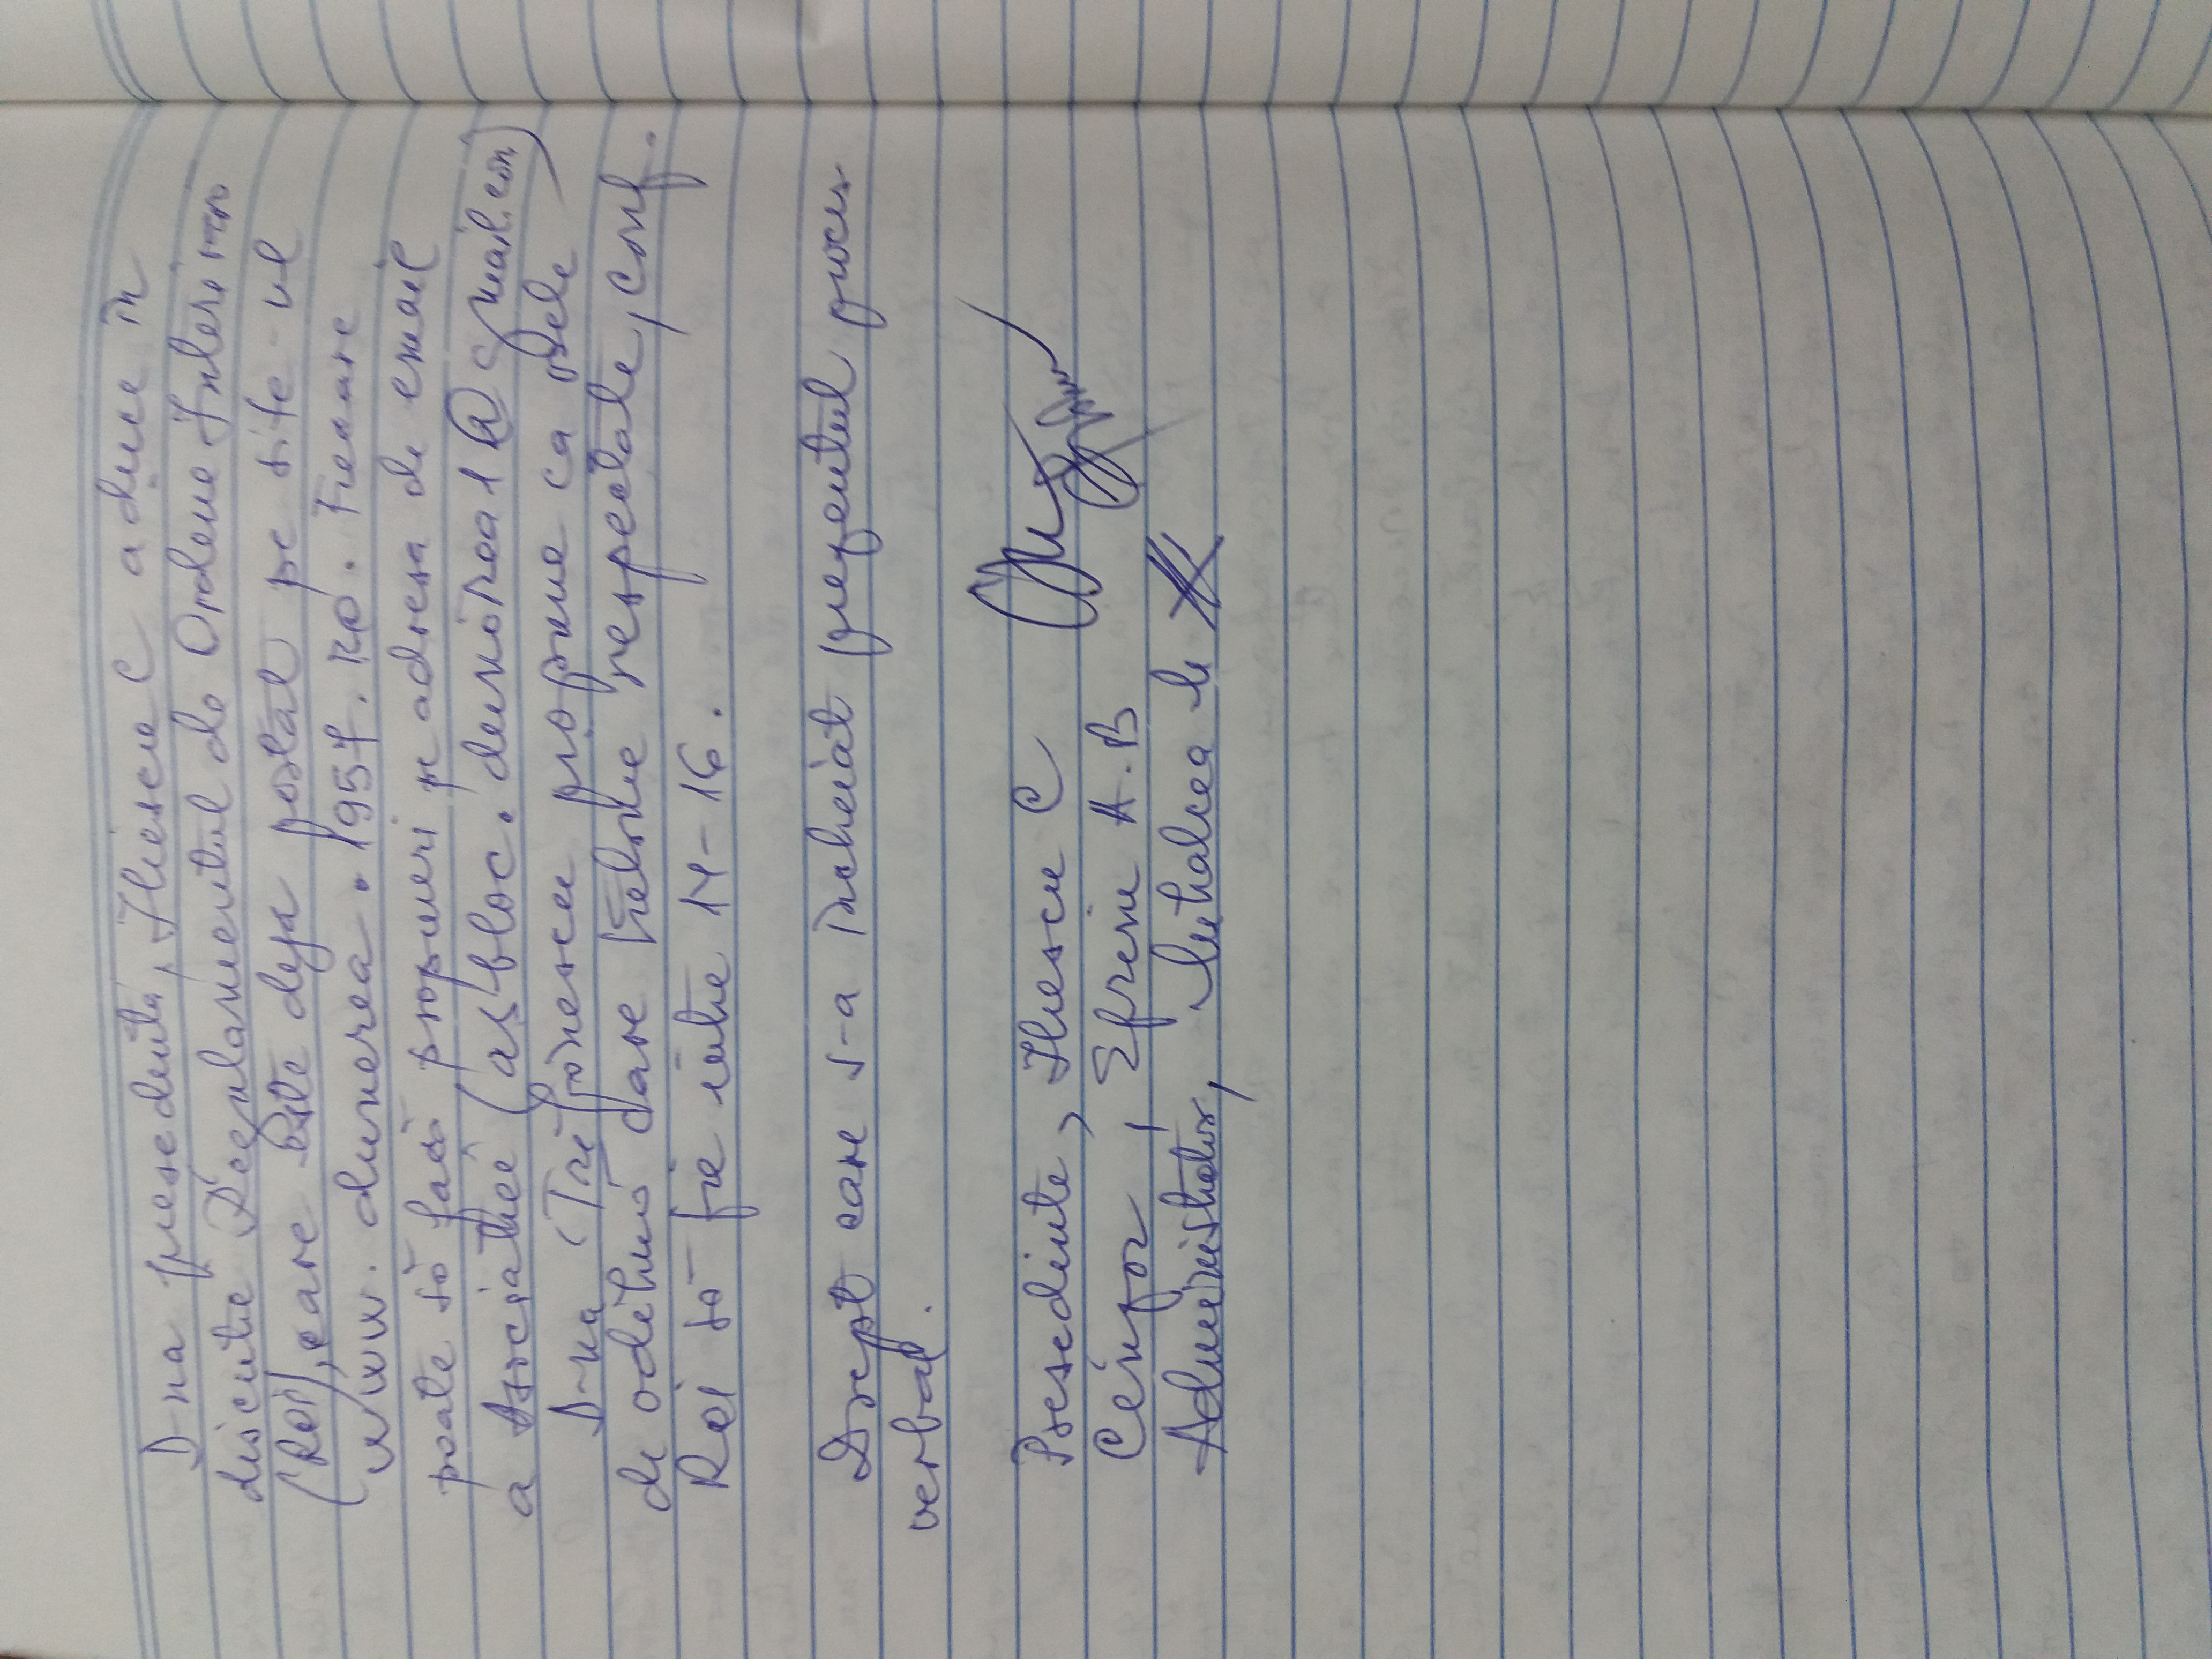 D-na presedinta, Iliescu C aduce în
discutie Regulamentul de Ordine Interioara
(ROI), care este deja postat pe site-ul
www.dunarea.1957.ro. Fiecare
poate să facă propuneri pe adresa de email
a Asociatiei (as.bloc.dunărea1@gmail.com)
D-na propune ca orele
de odihnă care trebuie respectate, conf.
ROI să fie intre 14-16.
Drept care s-a încheiat prezentul proces
verbal.
Presedinte, Iliescu C
Cenzor, Efrim A.B
Administrator, Mihalcea M